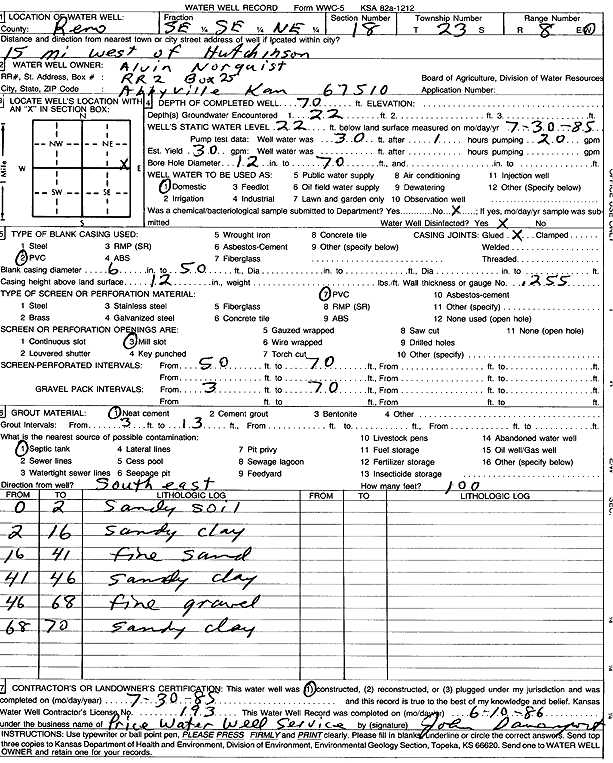 WATER WELL RECORD Form WWC-5 KSA 82a-1212
1 LOCATION OF WATER WELL: Fraction Section Number Township Number Range Number
County: Reno SE ¼ SE ¼ NE ¼ 18 T 23 S R 8 E(W)
Distance and direction from nearest town or city street address of well if located within city?
15 mi west of Hutchinson
2 WATER WELL OWNER: Alvin Norquist
RR#, St. Address, Box # : RR2 Box 25 Board of Agriculture, Division of Water Resources
City, State, ZIP Code : Abbyville Kan 67510 Application Number:
3 LOCATE WELL'S LOCATION WITH AN "X" IN SECTION BOX:
N
NW NE
W X E
SW SE
S
1 Mile
4 DEPTH OF COMPLETED WELL 70 ft. ELEVATION:
Depth(s) Groundwater Encountered 1. 22 ft. 2. ft. 3. ft.
WELL'S STATIC WATER LEVEL 22 ft. below land surface measured on mo/day/yr 7-30-85
Pump test data: Well water was 30 ft. after 1 hours pumping 20 gpm
Est. Yield 30 gpm: Well water was ft. after hours pumping gpm
Bore Hole Diameter 12 in. to 70 ft., and in. to ft.
WELL WATER TO BE USED AS: 5 Public water supply 8 Air conditioning 11 Injection well
1 Domestic 3 Feedlot 6 Oil field water supply 9 Dewatering 12 Other (Specify below)
2 Irrigation 4 Industrial 7 Lawn and garden only 10 Observation well
Was a chemical/bacteriological sample submitted to Department? Yes No X; If yes, mo/day/yr sample was submitted Water Well Disinfected? Yes X No
5 TYPE OF BLANK CASING USED: 5 Wrought iron 8 Concrete tile CASING JOINTS: Glued X Clamped
1 Steel 3 RMP (SR) 6 Asbestos-Cement 9 Other (specify below) Welded
2 PVC 4 ABS 7 Fiberglass Threaded
Blank casing diameter 6 in. to 50 ft., Dia in. to ft., Dia in. to ft.
Casing height above land surface 12 in., weight lbs./ft. Wall thickness or gauge No. .255
TYPE OF SCREEN OR PERFORATION MATERIAL: 7 PVC 10 Asbestos-cement
1 Steel 3 Stainless steel 5 Fiberglass 8 RMP (SR) 11 Other (specify)
2 Brass 4 Galvanized steel 6 Concrete tile 9 ABS 12 None used (open hole)
SCREEN OR PERFORATION OPENINGS ARE: 5 Gauzed wrapped 8 Saw cut 11 None (open hole)
1 Continuous slot 3 Mill slot 6 Wire wrapped 9 Drilled holes
2 Louvered shutter 4 Key punched 7 Torch cut 10 Other (specify)
SCREEN-PERFORATED INTERVALS: From 50 ft. to 70 ft., From ft. to ft.
From ft. to ft., From ft. to ft.
GRAVEL PACK INTERVALS: From 3 ft. to 70 ft., From ft. to ft.
From ft. to ft., From ft. to ft.
6 GROUT MATERIAL: 1 Neat cement 2 Cement grout 3 Bentonite 4 Other
Grout Intervals: From 3 ft. to 13 ft., From ft. to ft., From ft. to ft.
What is the nearest source of possible contamination: 10 Livestock pens 14 Abandoned water well
1 Septic tank 4 Lateral lines 7 Pit privy 11 Fuel storage 15 Oil well/Gas well
2 Sewer lines 5 Cess pool 8 Sewage lagoon 12 Fertilizer storage 16 Other (specify below)
3 Watertight sewer lines 6 Seepage pit 9 Feedyard 13 Insecticide storage
Direction from well? South east How many feet? 100
FROM TO LITHOLOGIC LOG FROM TO LITHOLOGIC LOG
0 2 Sandy soil
2 16 sandy clay
16 41 fine sand
41 46 sandy clay
46 68 fine gravel
68 70 sandy clay
7 CONTRACTOR'S OR LANDOWNER'S CERTIFICATION: This water well was (1) constructed, (2) reconstructed, or (3) plugged under my jurisdiction and was
completed on (mo/day/year) 7-30-85 and this record is true to the best of my knowledge and belief. Kansas
Water Well Contractor's License No. 193 This Water Well Record was completed on (mo/day/yr) 6-10-86
under the business name of Price Water Well Service by (signature) John
INSTRUCTIONS: Use typewriter or ball point pen, PLEASE PRESS FIRMLY and PRINT clearly. Please fill in blanks, underline or circle the correct answers. Send top
three copies to Kansas Department of Health and Environment, Division of Environment, Environmental Geology Section, Topeka, KS 66620. Send one to WATER WELL
OWNER and retain one for your records.